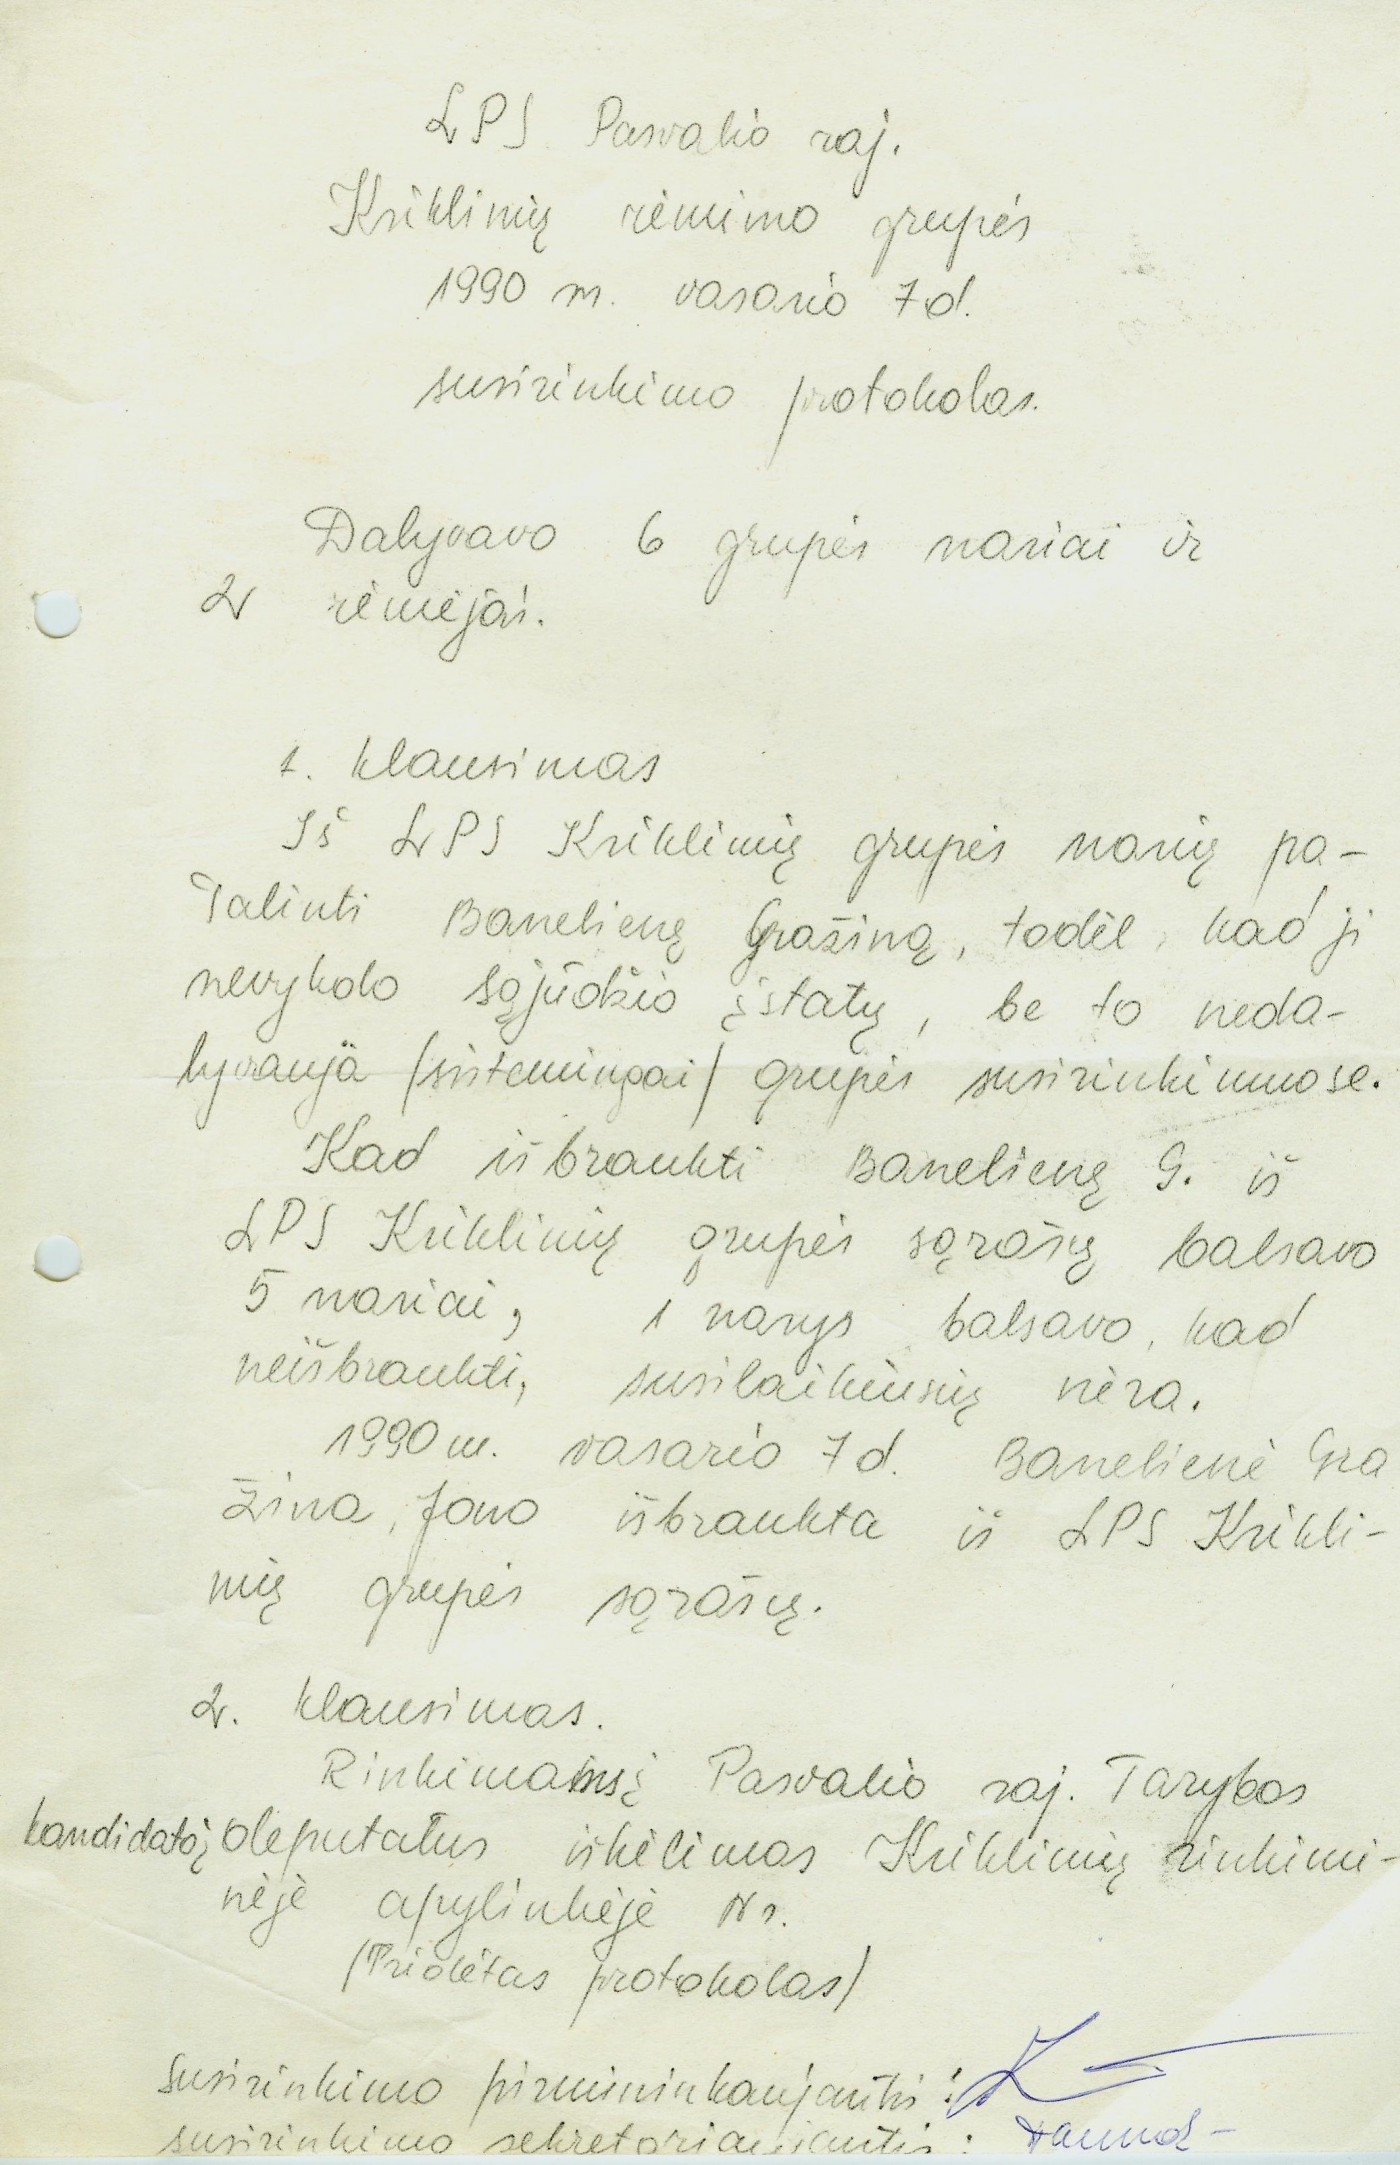 LPS Pasvalio raj.
Kriklinių rėmimo grupės
1990 m. vasario 7 d.
susirinkimo protokolas.
Dalyvavo 6 grupės nariai ir
2 rėmėjai.
1. klausimas
Iš LPS Kriklinių grupės narių pa-
šalinti Banelienę Gražiną, todėl, kad ji
nevykdo sąjūdžio įstatų, be to neda-
lyvauja /sistemingai/ grupės susirinkimuose.
Kad išbraukti Banelienę G. iš
LPS Kriklinių grupės sąrašų balsavo
5 nariai, 1 narys balsavo, kad
neišbraukti, susilaikiusių nėra.
1990 m. vasario 7 d. Banelienė Gra
žina, Jono išbraukta iš LPS Krikli-
nių grupės sąrašų.
2. klausimas.
Rinkimams į Pasvalio raj. Tarybos
kandidatų į deputatus iškėlimas Kriklinių rinkimi-
nėje apylinkėje Nr.
/Pridėtas protokolas/
Susirinkimo pirmininkaujantis:
susirinkimo sekretoriaujantis: